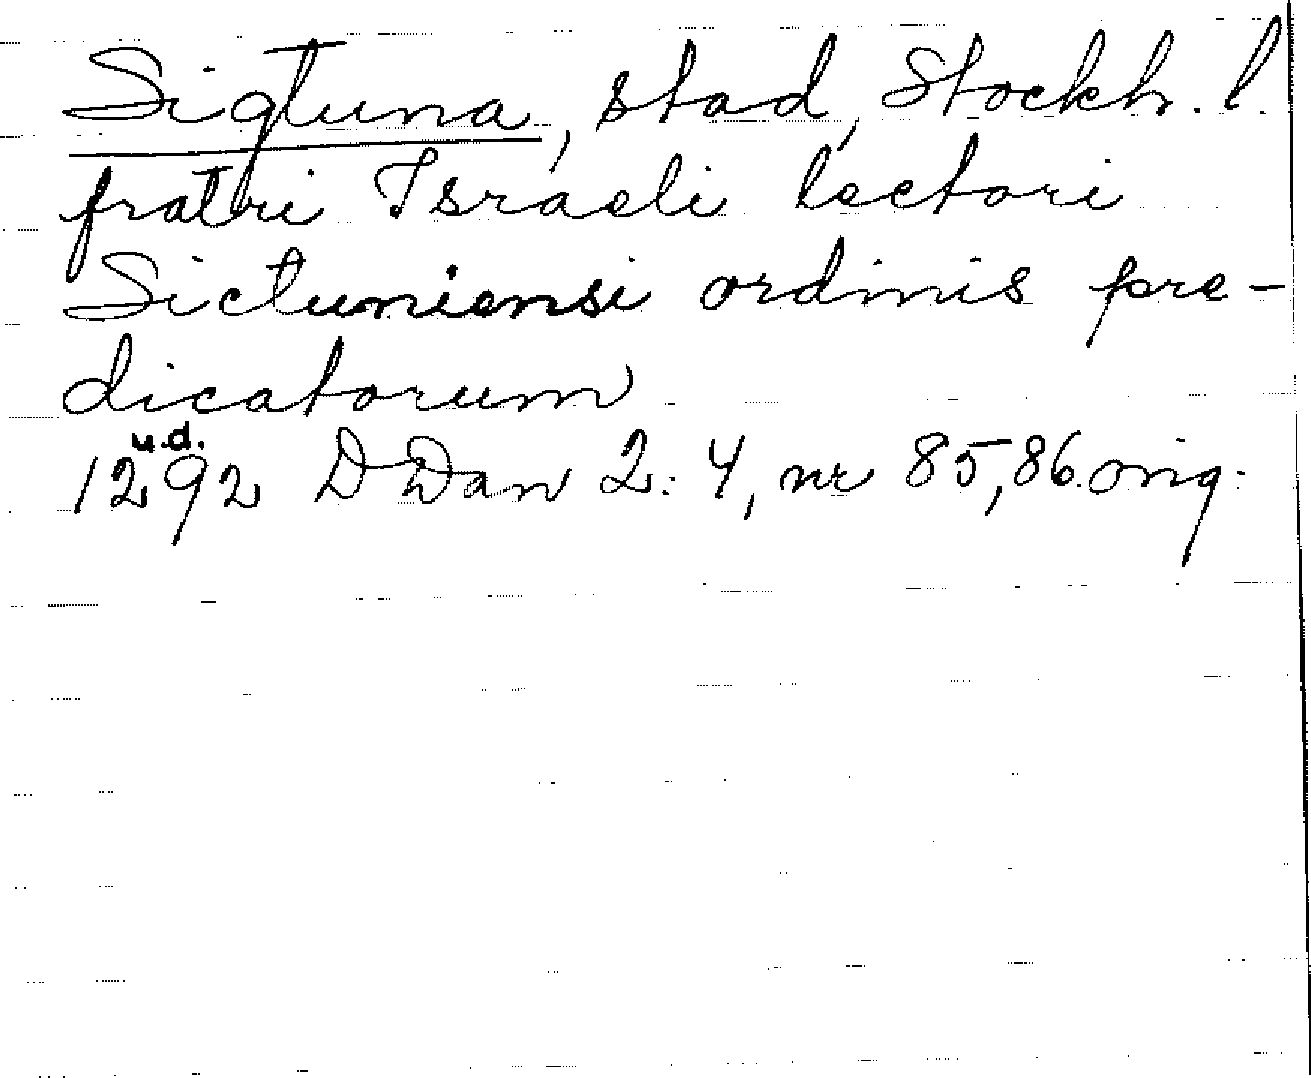 Sigtuna, stad, Stockh. l.
fratri Israeli lectori
Sictuniensi ordinis pre-
dicatorum
u.d.
1292 DDan 2:4, nr 85,86 orig.